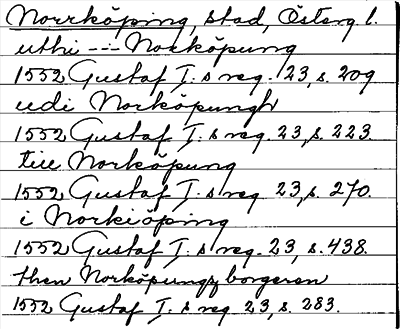 Norrköping, stad, Österg l.
uthi -:- Norköpung
1552 Gustaf I:s reg. 23, s. 209
udi Norköpungh
1552 Gustaf I:s reg. 23, s. 223.
till Norköpung
1552 Gustaf I:s reg 23, s. 270.
i Norkiöping
1552 Gustaf I:s reg. 23, s. 438.
then Norköpungz borgeren
1552 Gustaf I:s reg 23, s. 283.